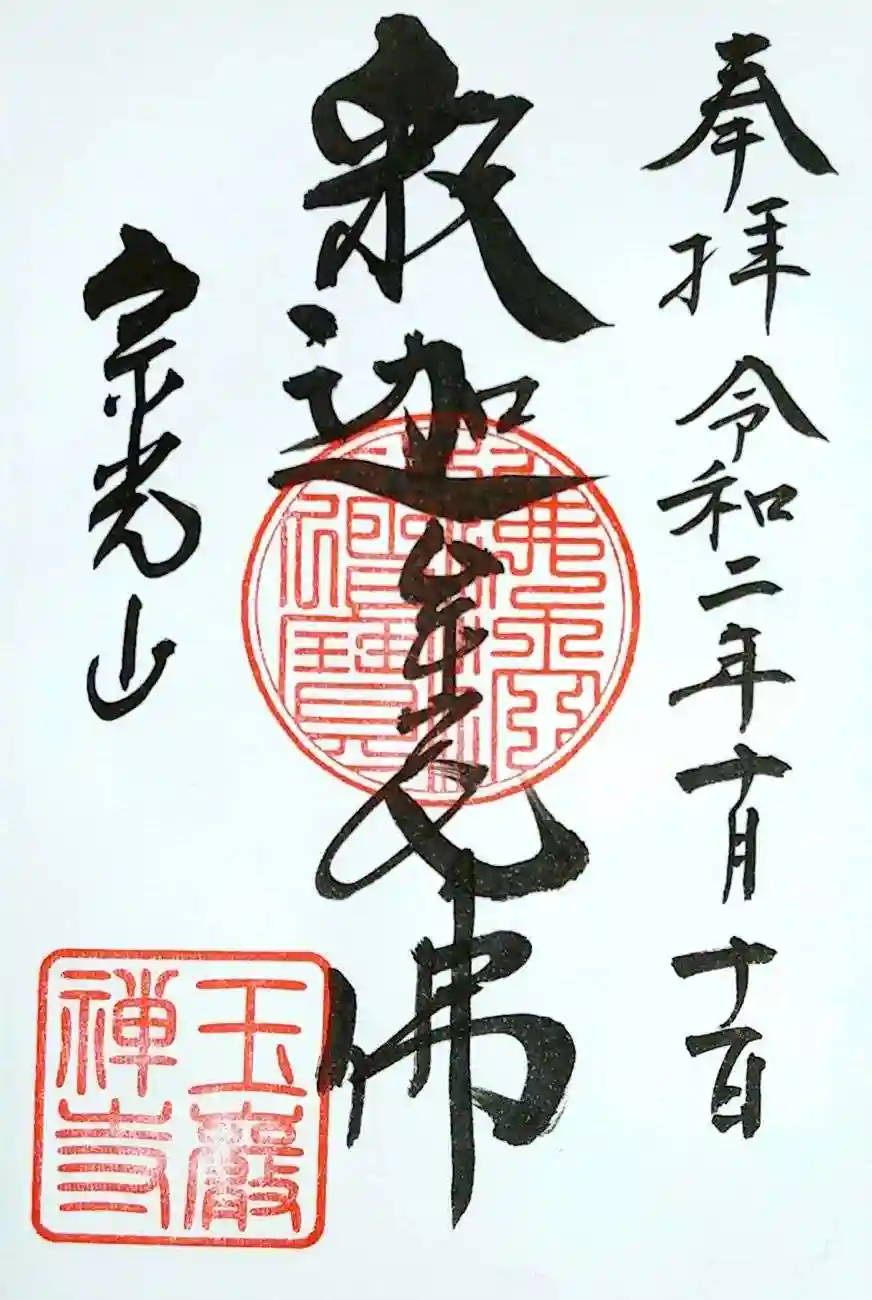 奉拝 令和二年十月十一日
釈迦牟尼佛
宗光山
玉巌
禅寺